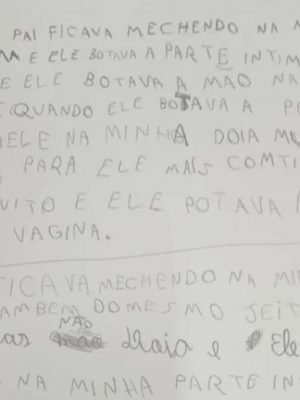 PAI FICAVA MECHENDO NA
E ELE BOTAVA A PARTE INTIM
E ELE BOTAVA A MAO NA
QUANDO ELE BOTAVA A P
DELE NA MINHA DOIA MU
PARA ELE MAIS COMTI
UITO E ELE POTAVA
VAGINA.
FICAVA MECHENDO NA MI
AMBEM DO MESMO JEIT
NÃO
as doia e Ele
NA MINHA PARTE IN